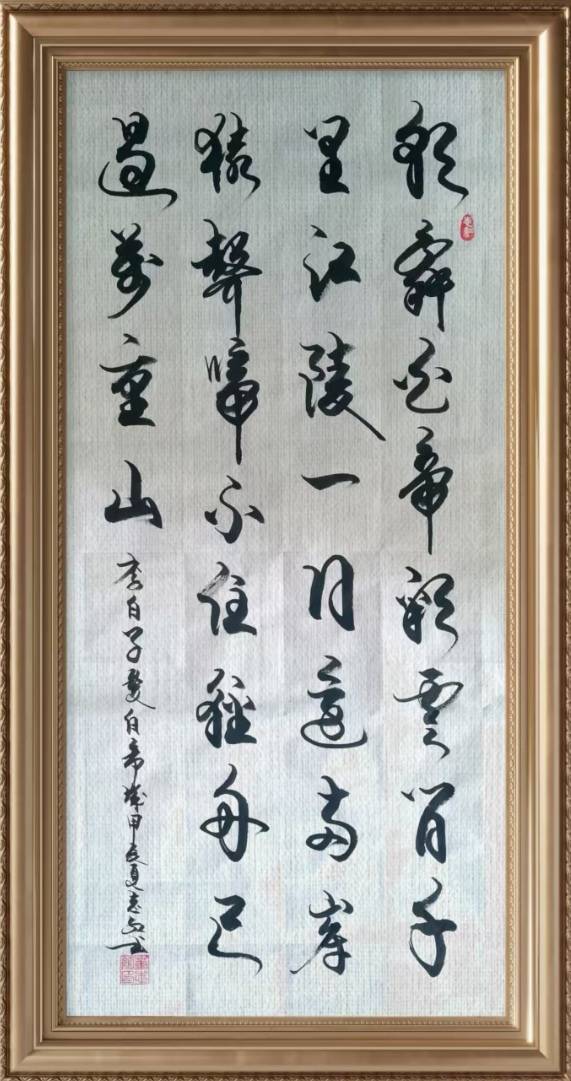 朝辭白帝彩雲間千
里江陵一日還兩岸
猿聲啼不住輕舟已
過萬重山
李白早發白帝城甲辰夏志